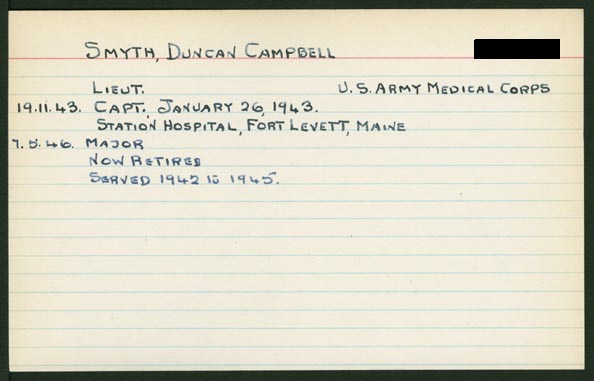 SMYTH, DUNCAN CAMPBELL
LIEUT. U.S. ARMY MEDICAL CORPS
19.11.43. CAPT., JANUARY 26, 1943.
STATION HOSPITAL, FORT LEVETT, MAINE
7.5.46. MAJOR
NOW RETIRED
SERVED 1942 TO 1945.